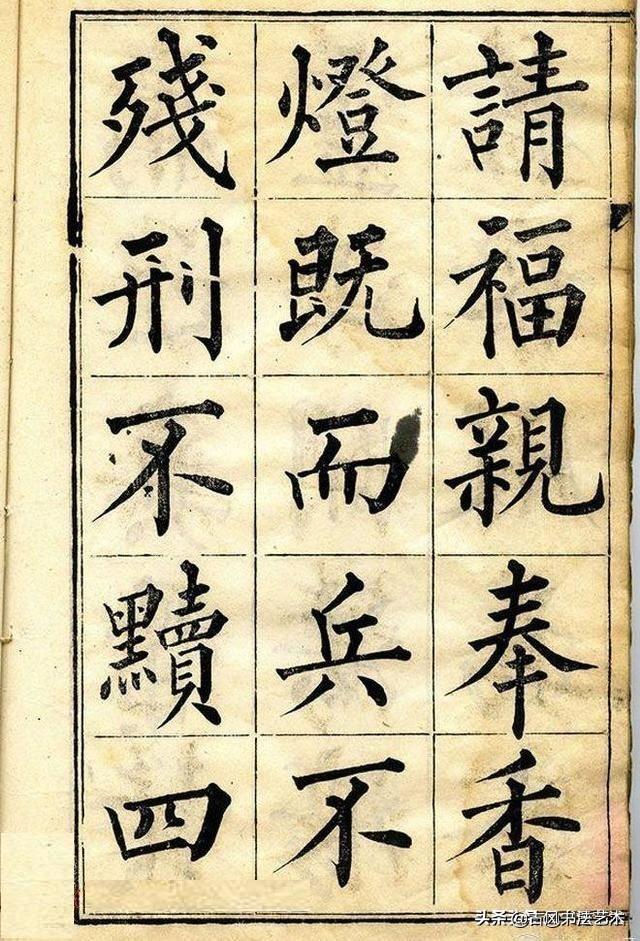 請福親奉香
燈既而兵不
殘刑不黷四
头条@古风书法艺术